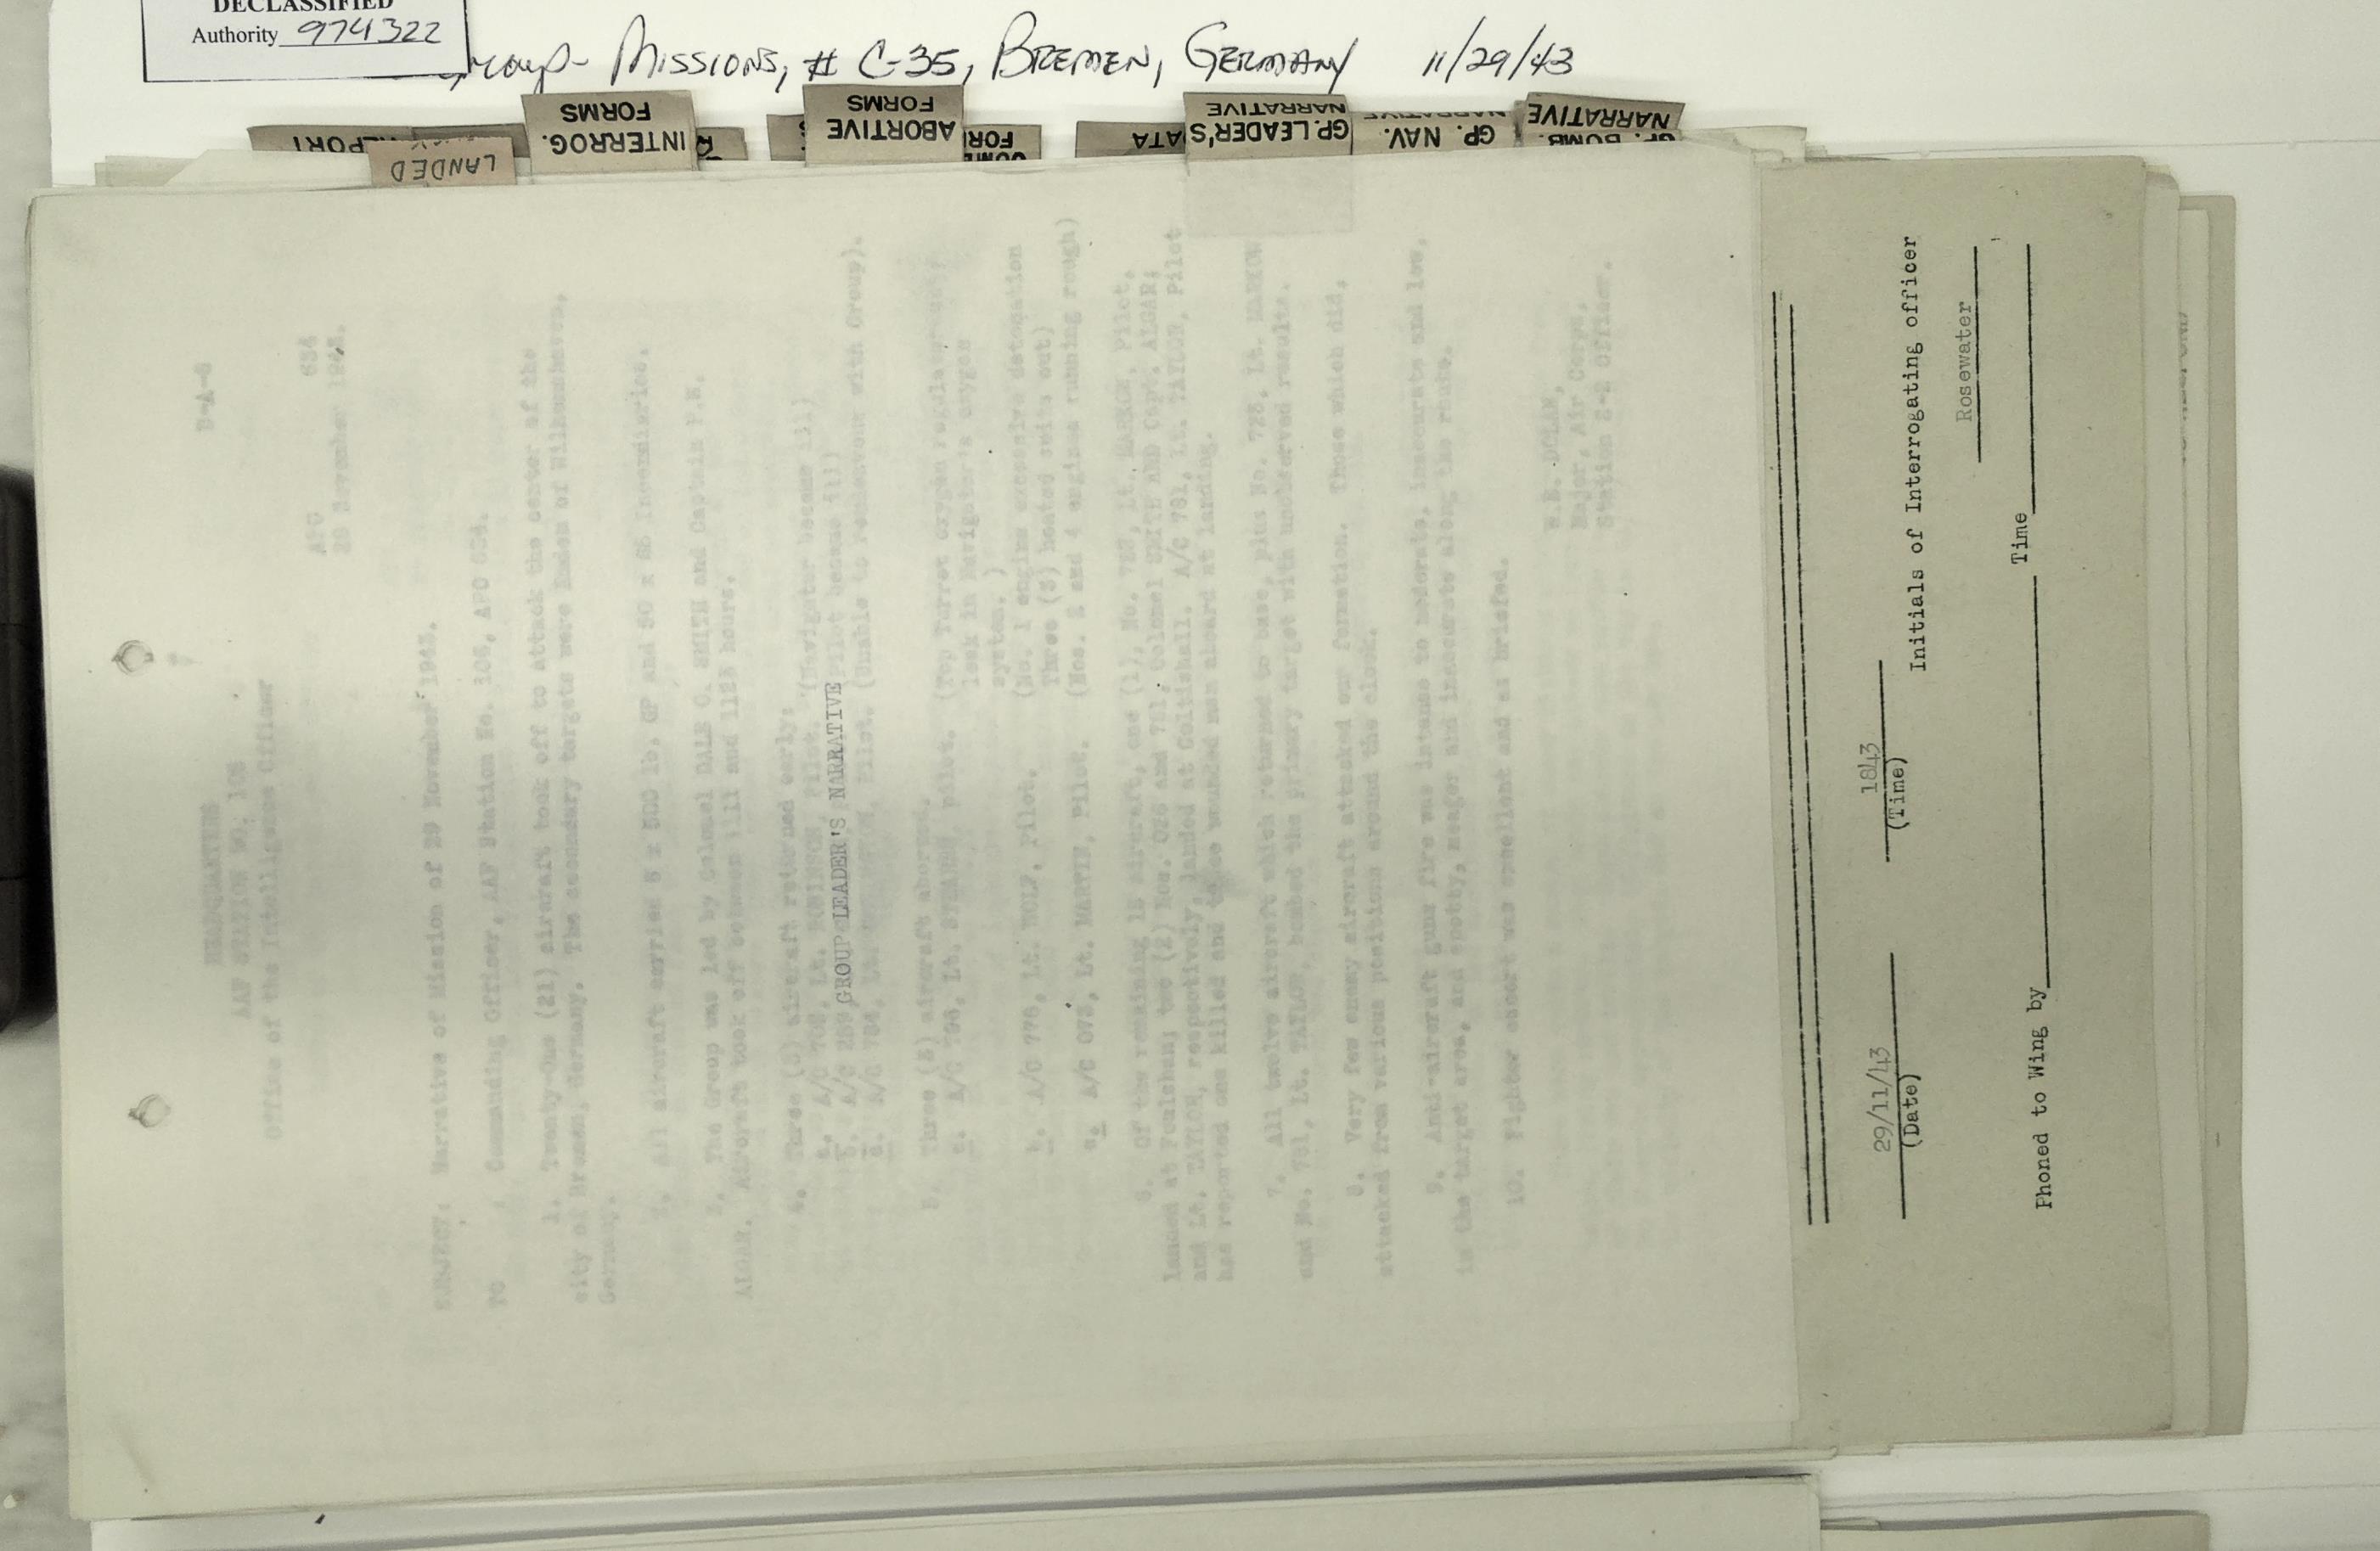 DECLASSIFIED
Authority 974322
Group- Missions, # C-35, Bremen, Germany 11/29/43
REPORT
LANDED
INTERROG.
FORMS
ABORTIVE
FORMS
GP.LEADER'S
NARRATIVE
GP. NAV.
NARRATIVE
GP. BOMB.
NARRATIVE
D-A-8
HEADQUARTERS
AAF STATION NO. 106
Office of the Intelligence Officer
APO 634
29 November 1943.
SUBJECT: Narrative of Mission of 29 November 1943.
TO : Commanding Officer, AAF Station No. 106, APO 634.
1. Twenty-One (21) aircraft took off to attack the center of the
city of Bremen, Germany. The secondary targets were Emden of Wilhelmshaven,
Germany.
2. All aircraft carried 5 x 500 lb. GP and 50 x 65 Incendiaries.
3. The Group was led by Colonel DALE O. SMITH and Captain
ALGAR. Aircraft took off between 1117 and 1123 hours.
4. Three (3) aircraft returned early:
Lt. ROBINSON, Pilot. (Navigator became ill)
(Pilot became ill)
Pilot. (Unable to rendezvous with Group).
GROUP LEADER'S NARRATIVE
5. Three (3) aircraft aborted.
A/C 796, Lt. pilot. (Top Turret oxygen regulator out;
leak in Navigator's oxygen
system.)
A/C 776, Lt. WOLF, Pilot. (No. 1 engine excessive detonation
Three (3) heated suits out)
A/C 073, Lt. MARTIN, Pilot. (Nos. 2 and 4 engines running rough)
6. Of the remaining 15 aircraft, one (1), No. Lt. Pilot,
landed at two (2) Nos. 026 and 781, Colonel SMITH AND Capt. ALGAR;
and Lt. TAYLOR, respectively, landed at Coltishall. A/C 781, Lt. TAYLOR, Pilot
has reported one killed and three wounded men aboard at landing.
7. All twelve aircraft which returned to base, plus No. Lt.
and No. 781, Lt. TAYLOR, bombed the primary target with unobserved results.
8. Very few enemy aircraft attacked our formation. Those which did,
attacked from various positions around the clock.
9. Anti-aircraft guns fire was intense to moderate, inaccurate and low,
in the target area, and spotty, meager and inaccurate along the route.
10. Fighter escort was excellent and as briefed.
W.E. DOLAN,
Major, Air Corps,
Station S-2 Officer.
29/11/43 1843
(Date) (Time)
Initials of Interrogating officer
Rosewater
Phoned to Wing by Time